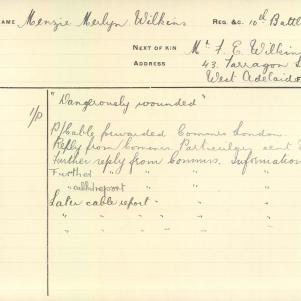 NAME Menzie Merlyn Wilkins REG. &C. 10th Battl
NEXT OF KIN Mr. F. E. Wilkin
ADDRESS 43, Tarragon S
West Adelaide
"Dangerously wounded"
1/D P/Cable forwarded Commrs London.
Reply from Commr Particulars sent
Further reply from Commrs. Information
Further " " "
" cable report " "
Later cable report " " "
" " " " "
" " " " "